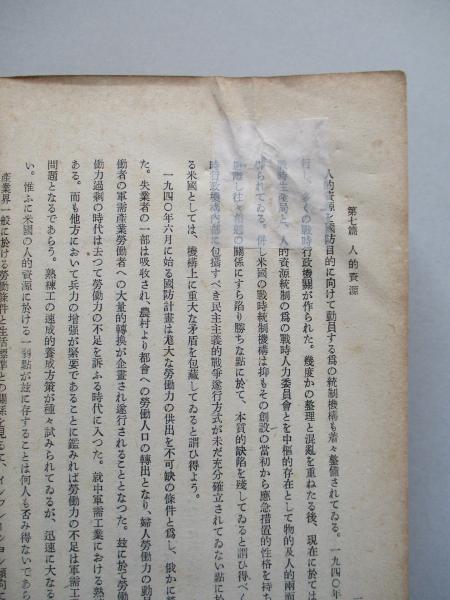 第七篇 人的資源
人的資源を國防目的に向けて動員する爲の統制機構も着々整備されてゐる。一九四〇年
行し、多くの戰時行政機關が作られた。幾度かの整理と混亂を重ねたる後、現在に於ては
戰時生産局と、人的資源統制の爲の戰時人力委員會とを中樞的存在として物的及人的兩面
られてゐる。併し米國の戰時統制機構は抑もその創設の當初から應急措置的性格を持ち
際し往々相剋の關係にすら陷り勝ちな點に於て、本質的缺陷を殘してゐると謂ひ得べく
時行政機構内部に包攝すべき民主主義的戰爭遂行方式が未だ充分確立されてゐない點に於
る米國としては、機構上に重大な矛盾を包藏してゐると謂ひ得よう。
一九四〇年六月に始る國防計畫は厖大な勞働力の供出を不可缺の條件と爲し、俄かに
た。失業者の一部は吸收され、農村より都會への勞働人口の轉出となり、婦人勞働力の動員
働者の軍需産業勞働者への大量的轉換が企畫され遂行されることとなつた。玆に於て勞働
働力過剩の時代は去つて勞働力の不足を訴ふる時代に入つた。就中軍需工業における熟
ある。而も他方において兵力の增强が緊要であることに鑑みれば勞働力の不足は軍需工
問題となるであらう。熟練工の速成的養成方策が種々試みられてゐるが、迅速に大なる
い。惟ふに米國の人的資源に於ける一弱點が玆に存することは何人も否み得ないであら
産業界一般に於ける勞働條件と生活標準との關係を見るに、インフレーション傾向に